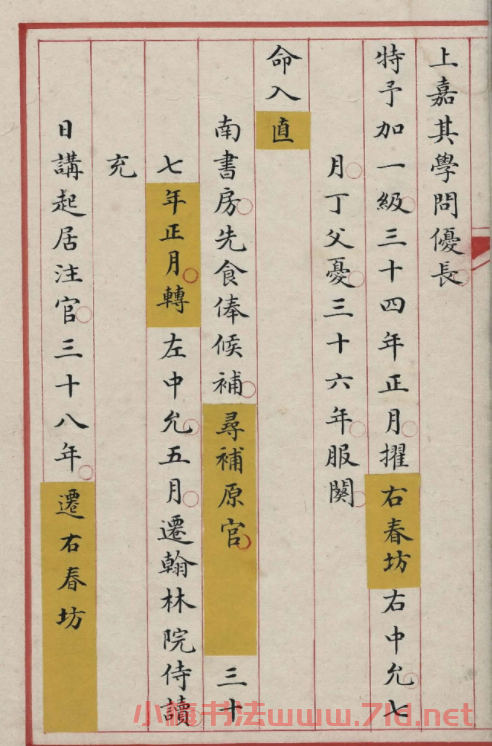 上嘉其學問優長
特予加一級三十四年正月擢右春坊右中允七
月丁父憂三十六年服闋
命入直
南書房先食俸候補尋補原官三十
七年正月轉左中允五月遷翰林院侍讀
充
日講起居注官三十八年遷右春坊
小楷书法www.7ld.net